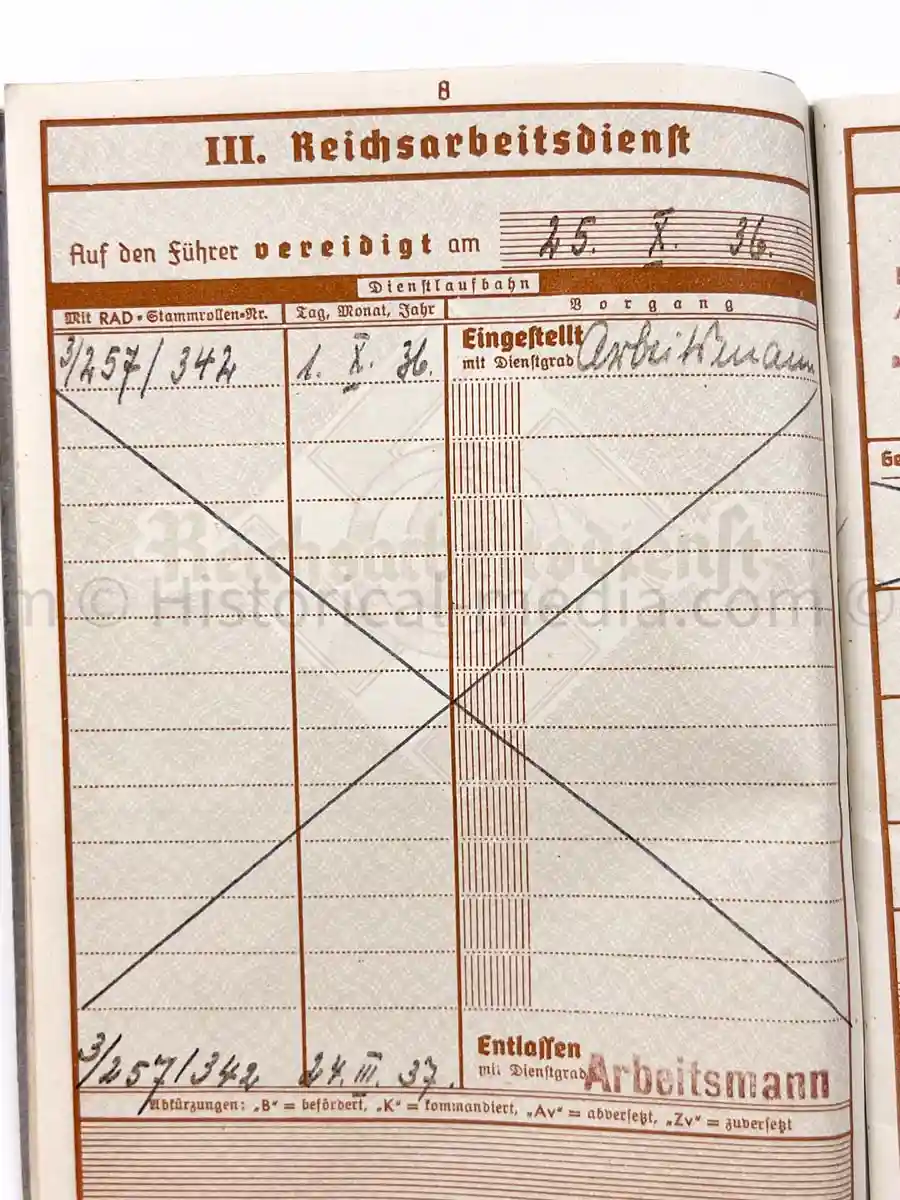 8
III. Reichsarbeitsdienst
Auf den Führer vereidigt am 25. X. 36.
Dienstlaufbahn
Mit RAD-Stammrollen-Nr. Tag, Monat, Jahr Vorgang
3/257/342 1. X. 36. Eingestellt
mit Dienstgrad Arbeitsmann
Reichsarbeitsdienst
m © Historical-media.com ©
3/257/342 24. III. 37. Entlassen
mit Dienstgrad Arbeitsmann
Abkürzungen: „B“ = befördert, „K“ = kommandiert, „Av“ = abversetzt, „Zv“ = zuversetzt